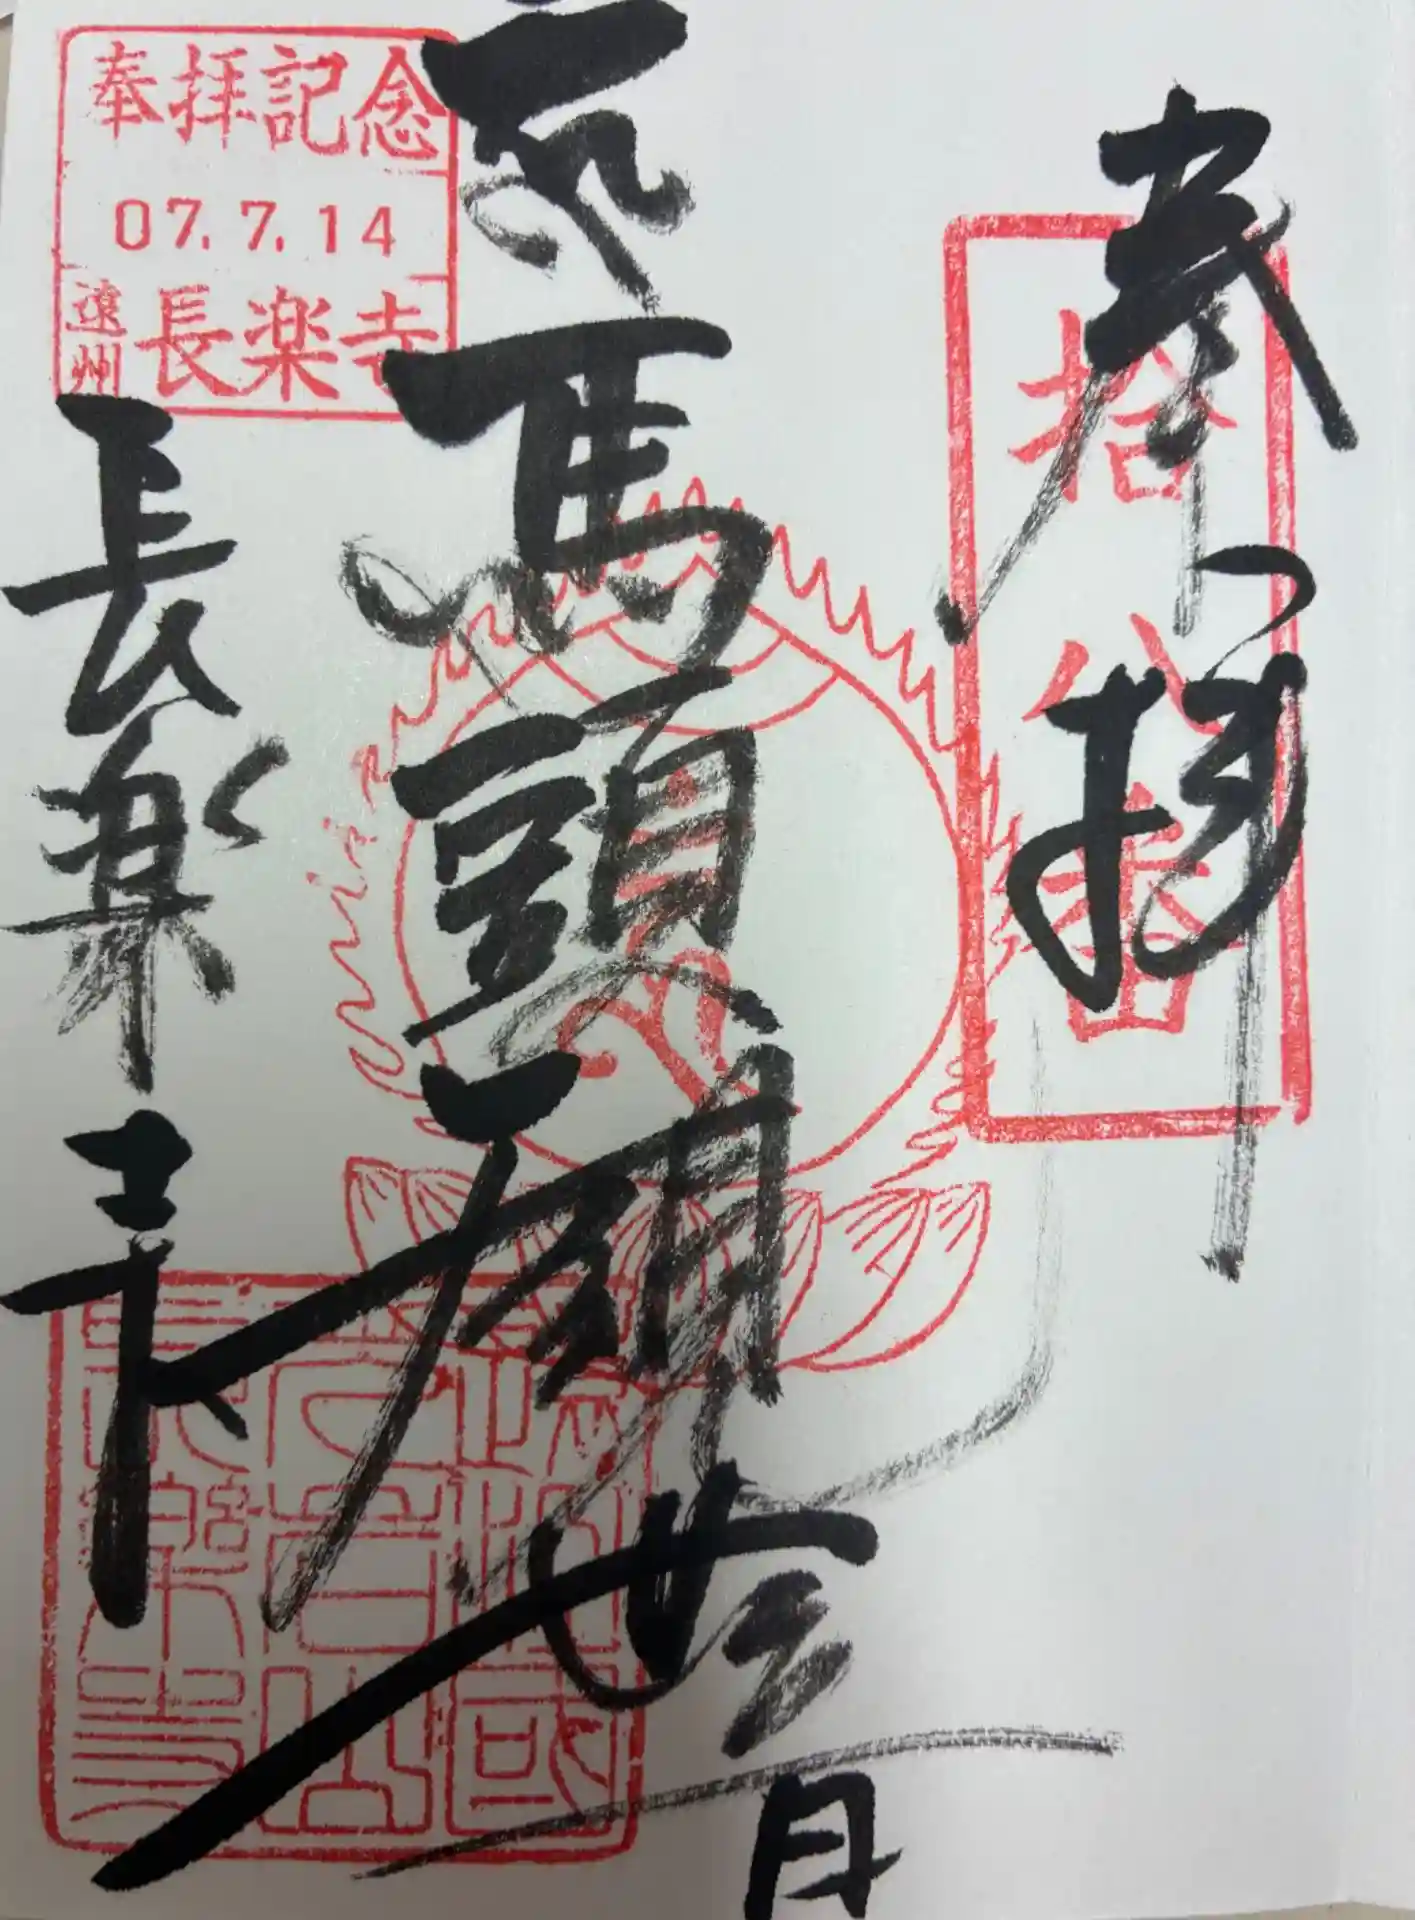 奉拝
拾八番
馬頭観世音
奉拝記念
07.7.14
遠州
長楽寺
長楽寺